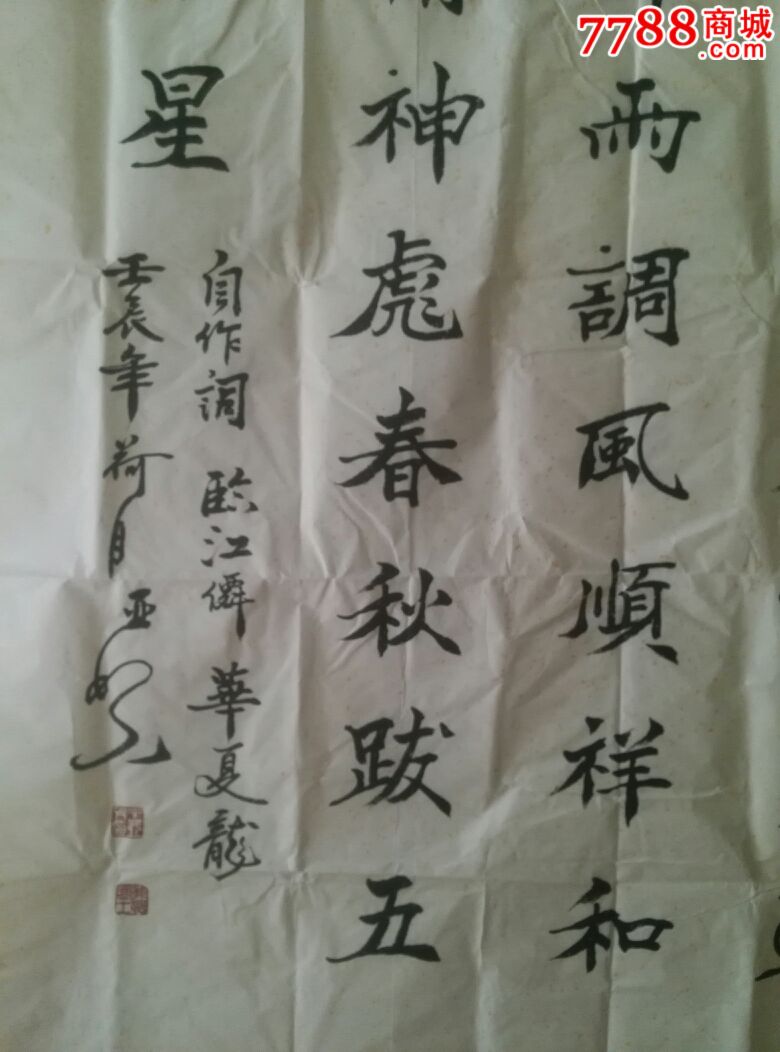 7788商城
.com
雨調風順祥和
神彪春秋跋五
星
自作詞 臨江僊 華夏龍
壬辰年荷月亚